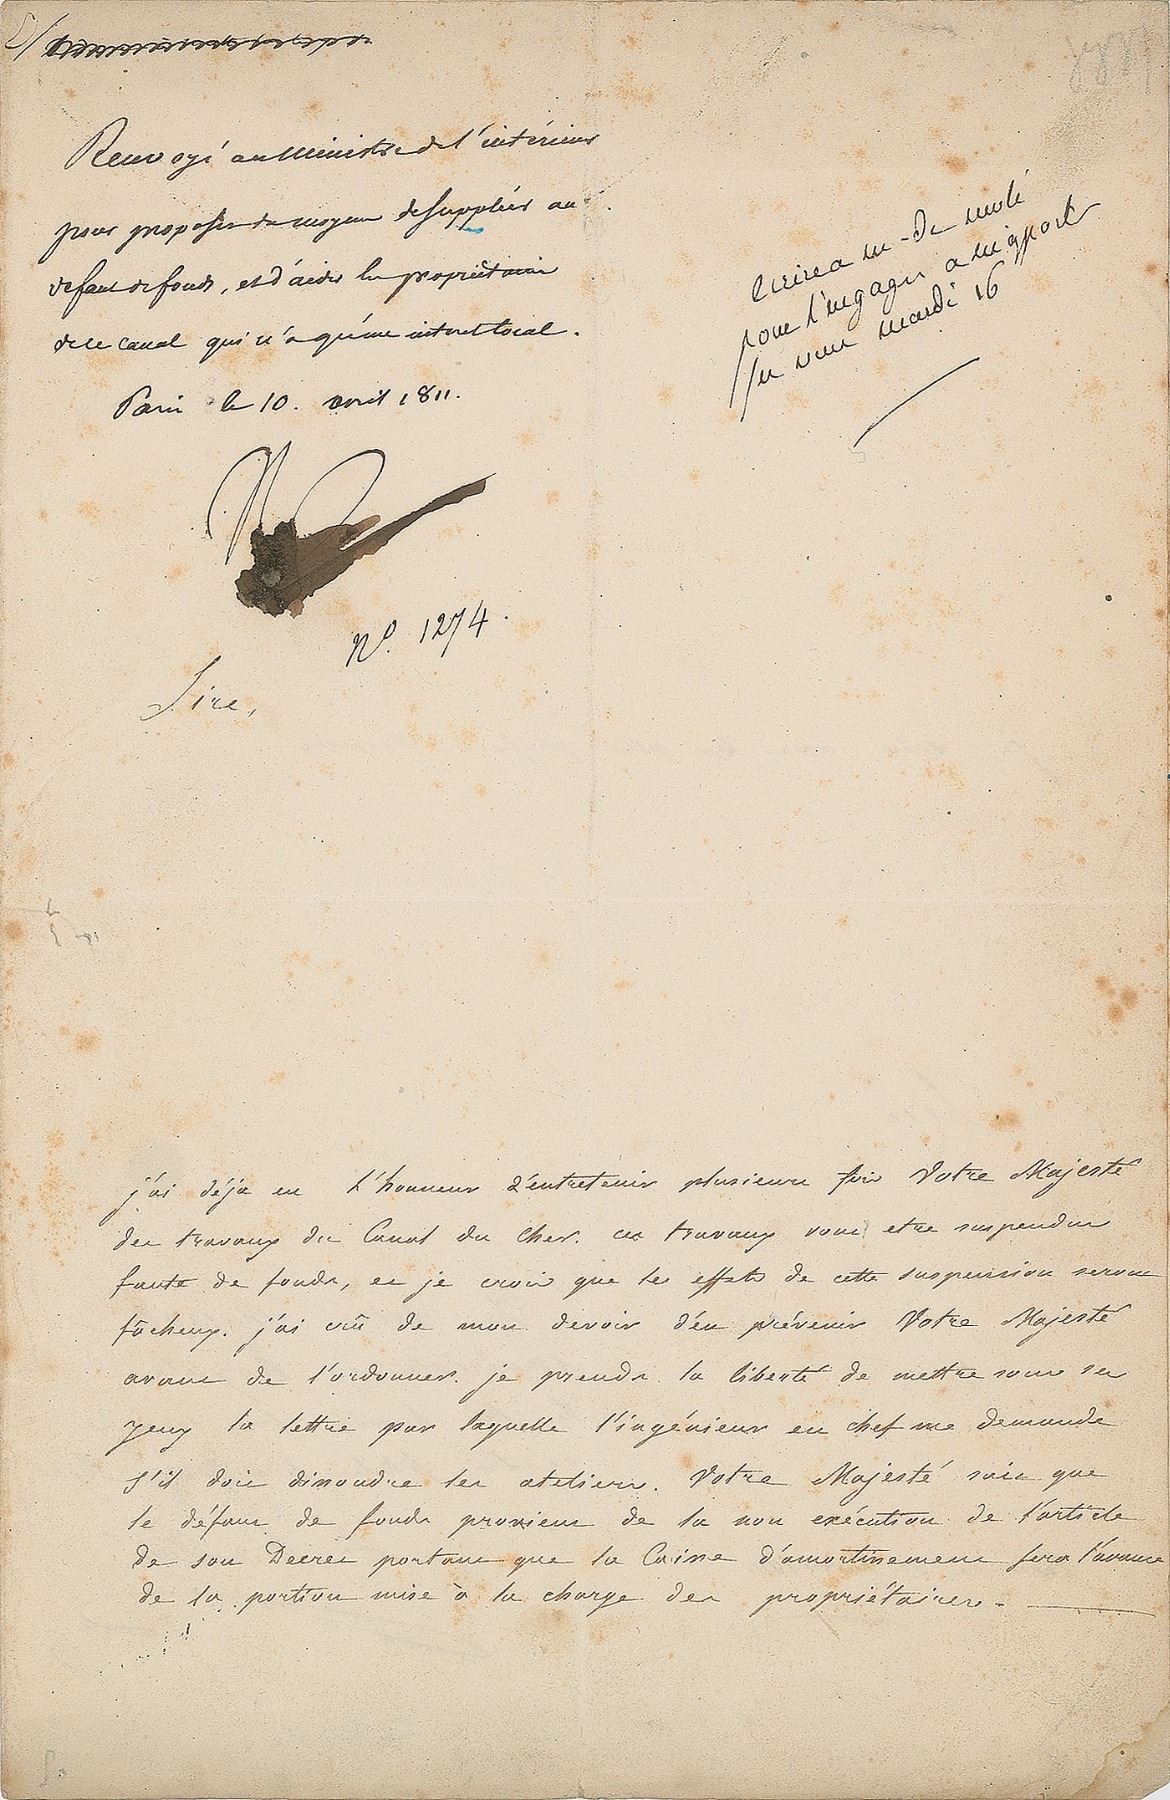 Renvoyé au Ministre de l'intérieur
pour proposer du moyen de suppléer au
defaut de fonds, et d'aider les propriétaires
de ce canal qui n'a qu'une interet local.
Paris le 10. avril 1811.
N
N.º 1274.
Ecrire a M. De Molé
pour l'engager a m'apporter
mardi 16
Sire,
j'ai déja eu l'honneur d'entretenir plusieurs fois Votre Majesté
des travaux du Canal du Cher. ces travaux vont etre suspendus
faute de fonds, et je crois que les effets de cette suspension seront
fâcheux. j'ai crû de mon devoir d'en prévenir Votre Majesté
avant de l'ordonner. je prends la liberté de mettre sous ses
yeux la lettre par laquelle l'ingénieur en chef me demande
s'il doit dissoudre les ateliers. Votre Majesté sait que
le défaut de fonds provient de la non exécution de l'article
de son Decret portant que la Caisse d'amortissement fera l'avance
de la portion mise à la charge des propriétaires.